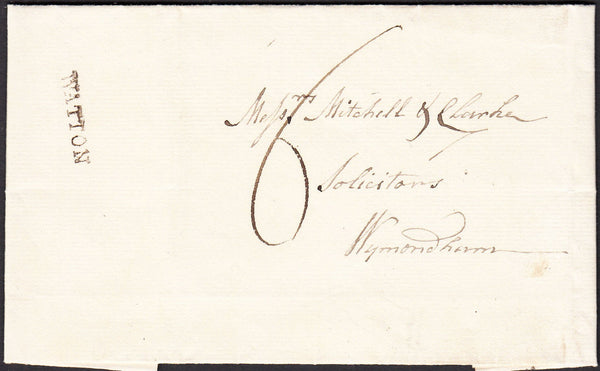 WATTON
6
Messrs Mitchell & Clarke
Solicitors
Wymondham